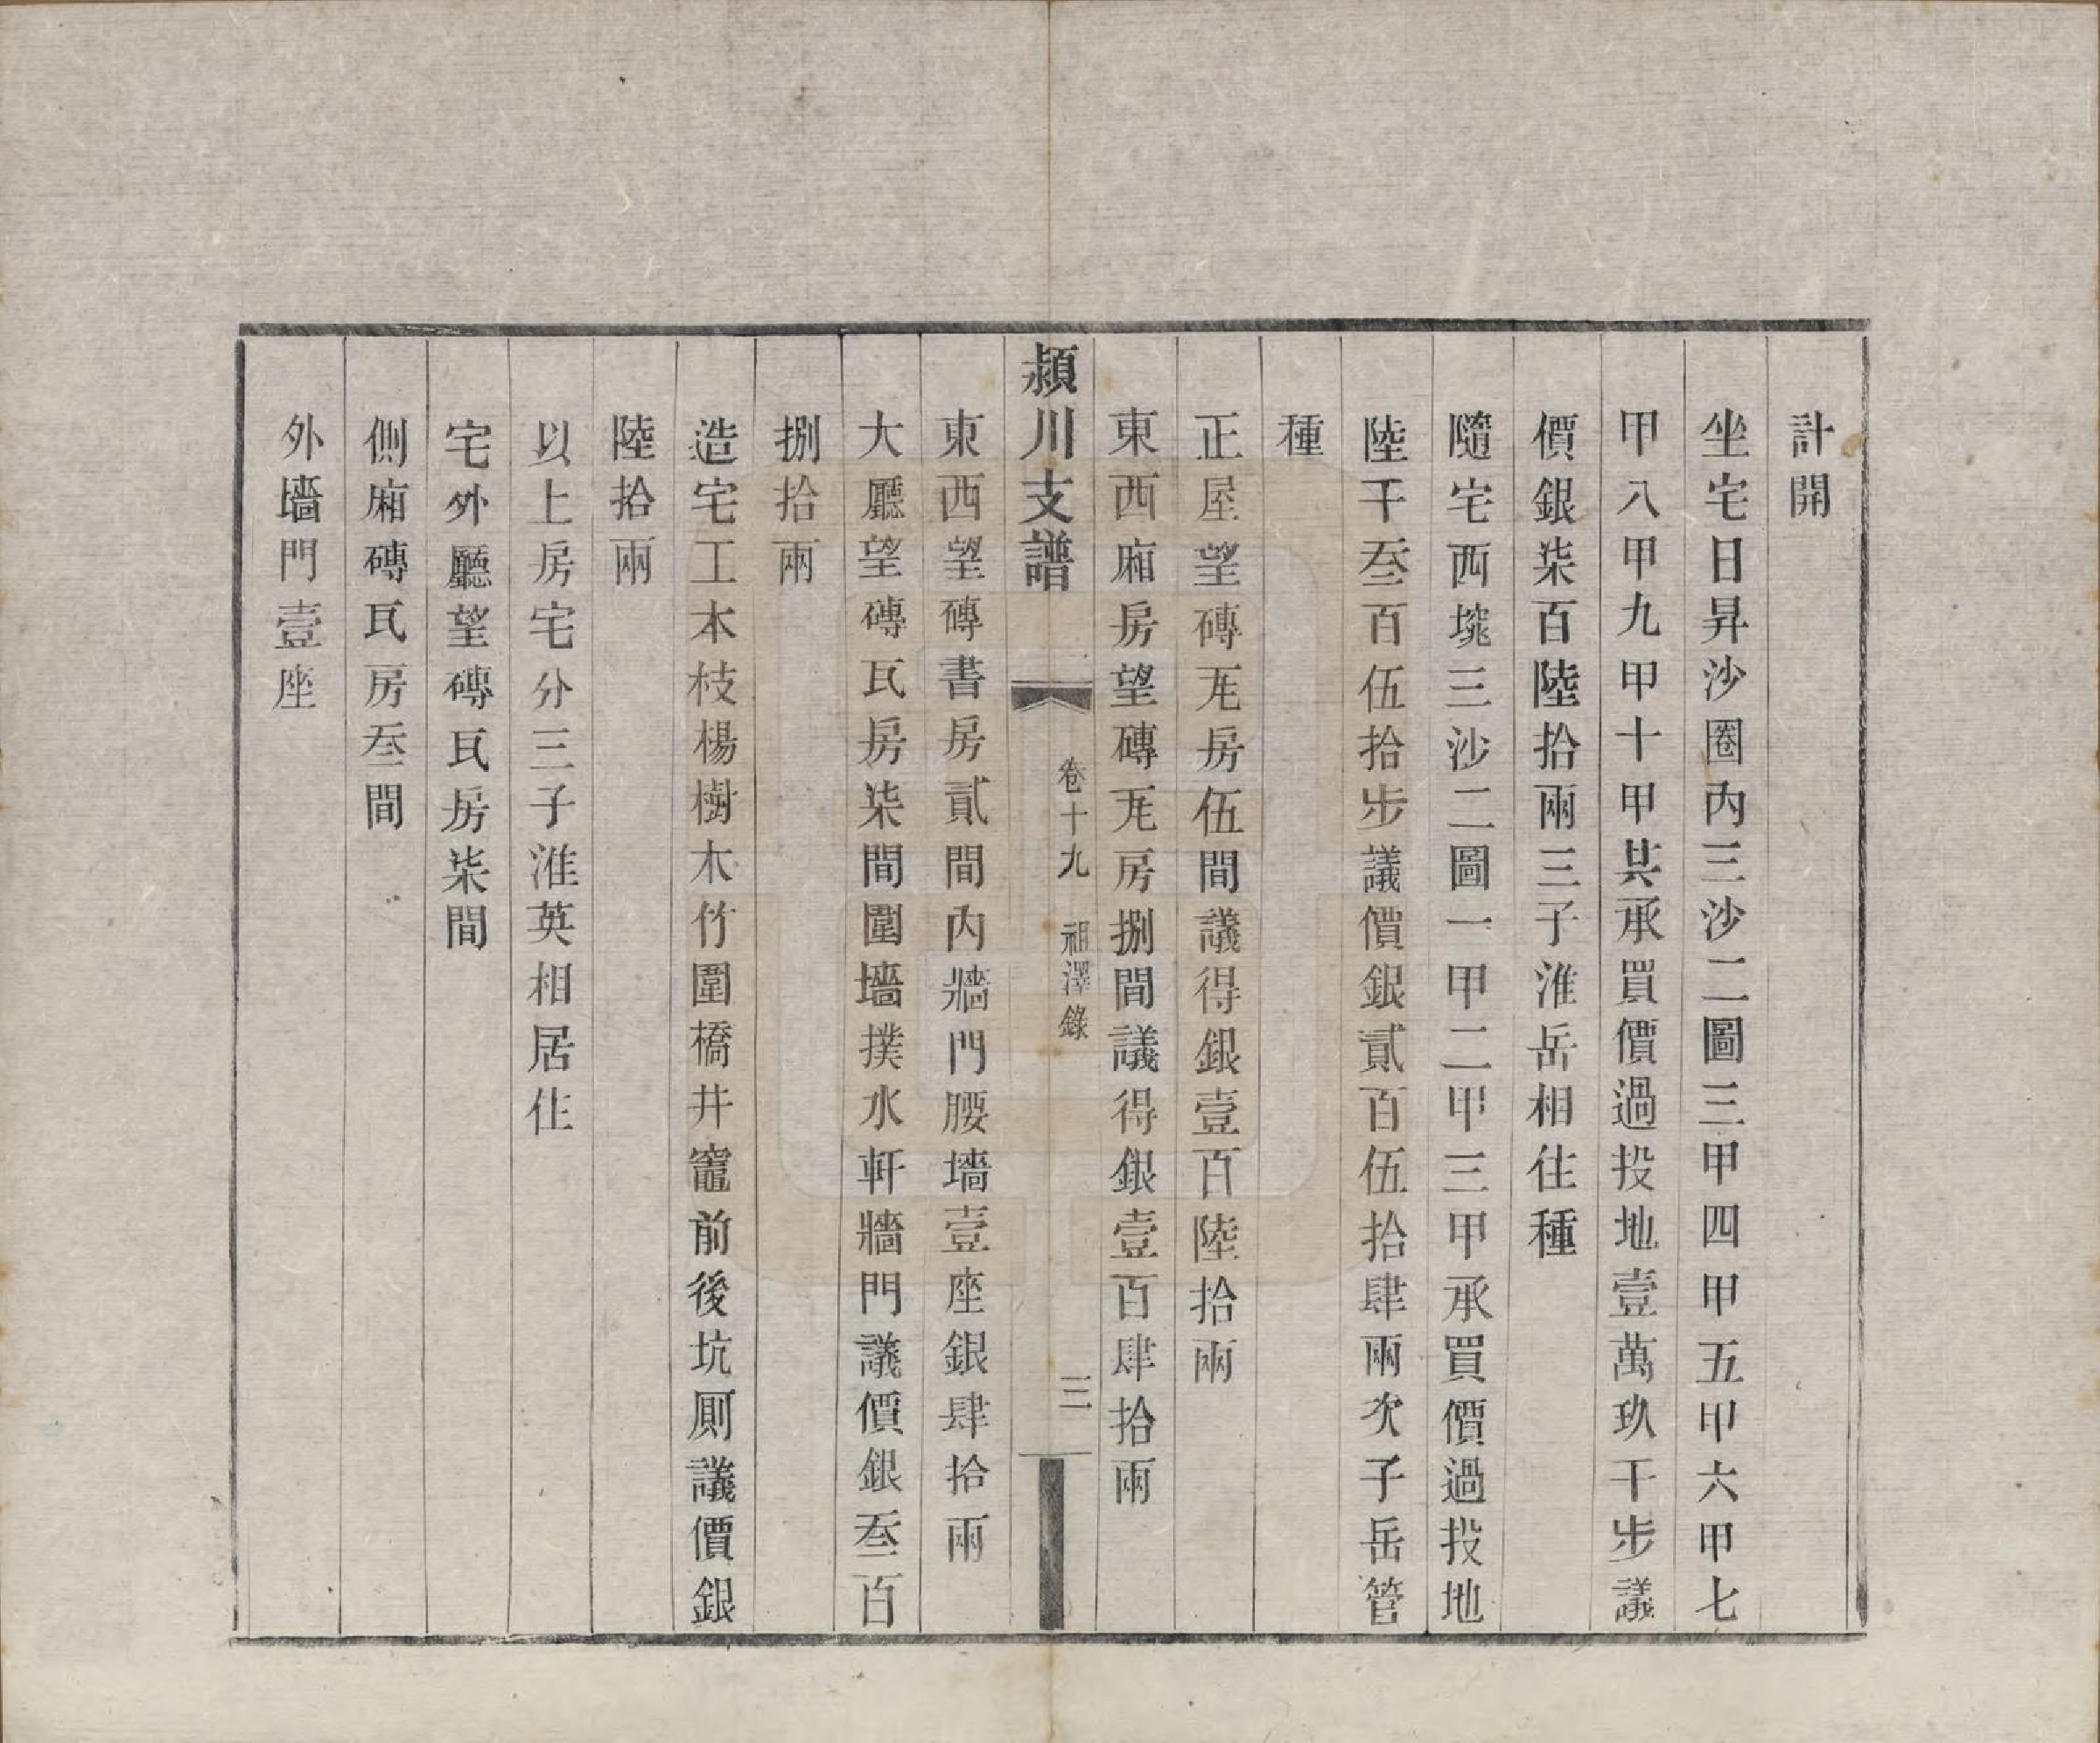 計開
坐宅日昇沙圈內三沙二圖三甲四甲五甲六甲七
甲八甲九甲十甲共承買價過投地壹萬玖千步議
價銀柒百陸拾兩三子淮岳相住種
隨宅西埦三沙二圖一甲二甲三甲承買價過投地
陸千叁百伍拾步議價銀貳百伍拾肆兩次子岳管
種
正屋望磚瓦房伍間議得銀壹百陸拾兩
東西廂房望磚瓦房捌間議得銀壹百肆拾兩
潁川支譜 卷十九 祖澤錄 三
東西望磚書房貳間內牆門腰墻壹座銀肆拾兩
大廳望磚瓦房柒間圍墻撲水軒牆門議價銀叁百
捌拾兩
造宅工木枝楊樹木竹圍橋井竈前後坑厠議價銀
陸拾兩
以上房宅分三子淮英相居住
宅外廳望磚瓦房柒間
側廂磚瓦房叁間
外墻門壹座